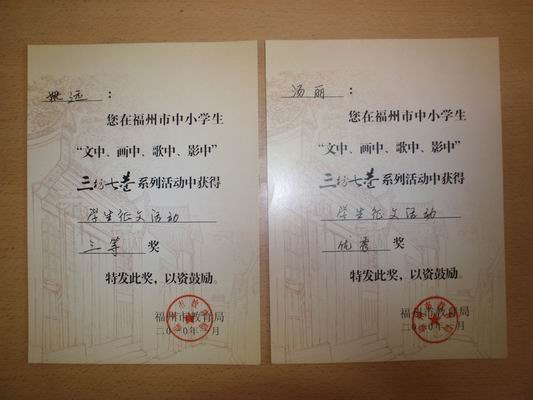 姚远：
您在福州市中小学生
“文中、画中、歌中、影中”
三坊七巷系列活动中获得
学生征文活动
三等 奖
特发此奖，以资鼓励。
福州市教育局
二〇一〇年 月
汤丽：
您在福州市中小学生
“文中、画中、歌中、影中”
三坊七巷系列活动中获得
学生征文活动
优秀 奖
特发此奖，以资鼓励。
福州市教育局
二〇一〇年 月